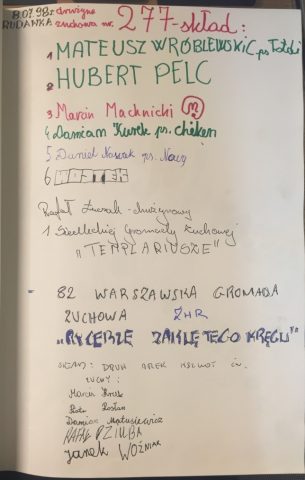 8.07.98r. drużyna
RUDAWKA zuchowa nr. 277-skład:
1 MATEUSZ WRÓBLEWSKI ps
2 HUBERT PELC
3 Marcin Machnicki
4 Damian Kurek ps. cheken
5 Daniel ps.
6
Rafał - drużynowy
1 Siedleckiej Gromady Zuchowej
"TEMPLARIUSZE"
82 WARSZAWSKA GROMADA
ZUCHOWA ZHR
"RYCERZE ZAKLĘTEGO KRĘGU"
SKŁAD: DRUH AREK ĆW.
ZUCHY:
Marcin
Piotr
Damian Matusiewicz
RAFAŁ DZIUBA
Janek WOŹNIAK